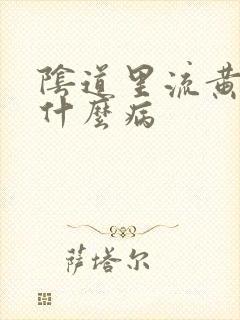 陰道里流黄
什麼病
萨塔尔